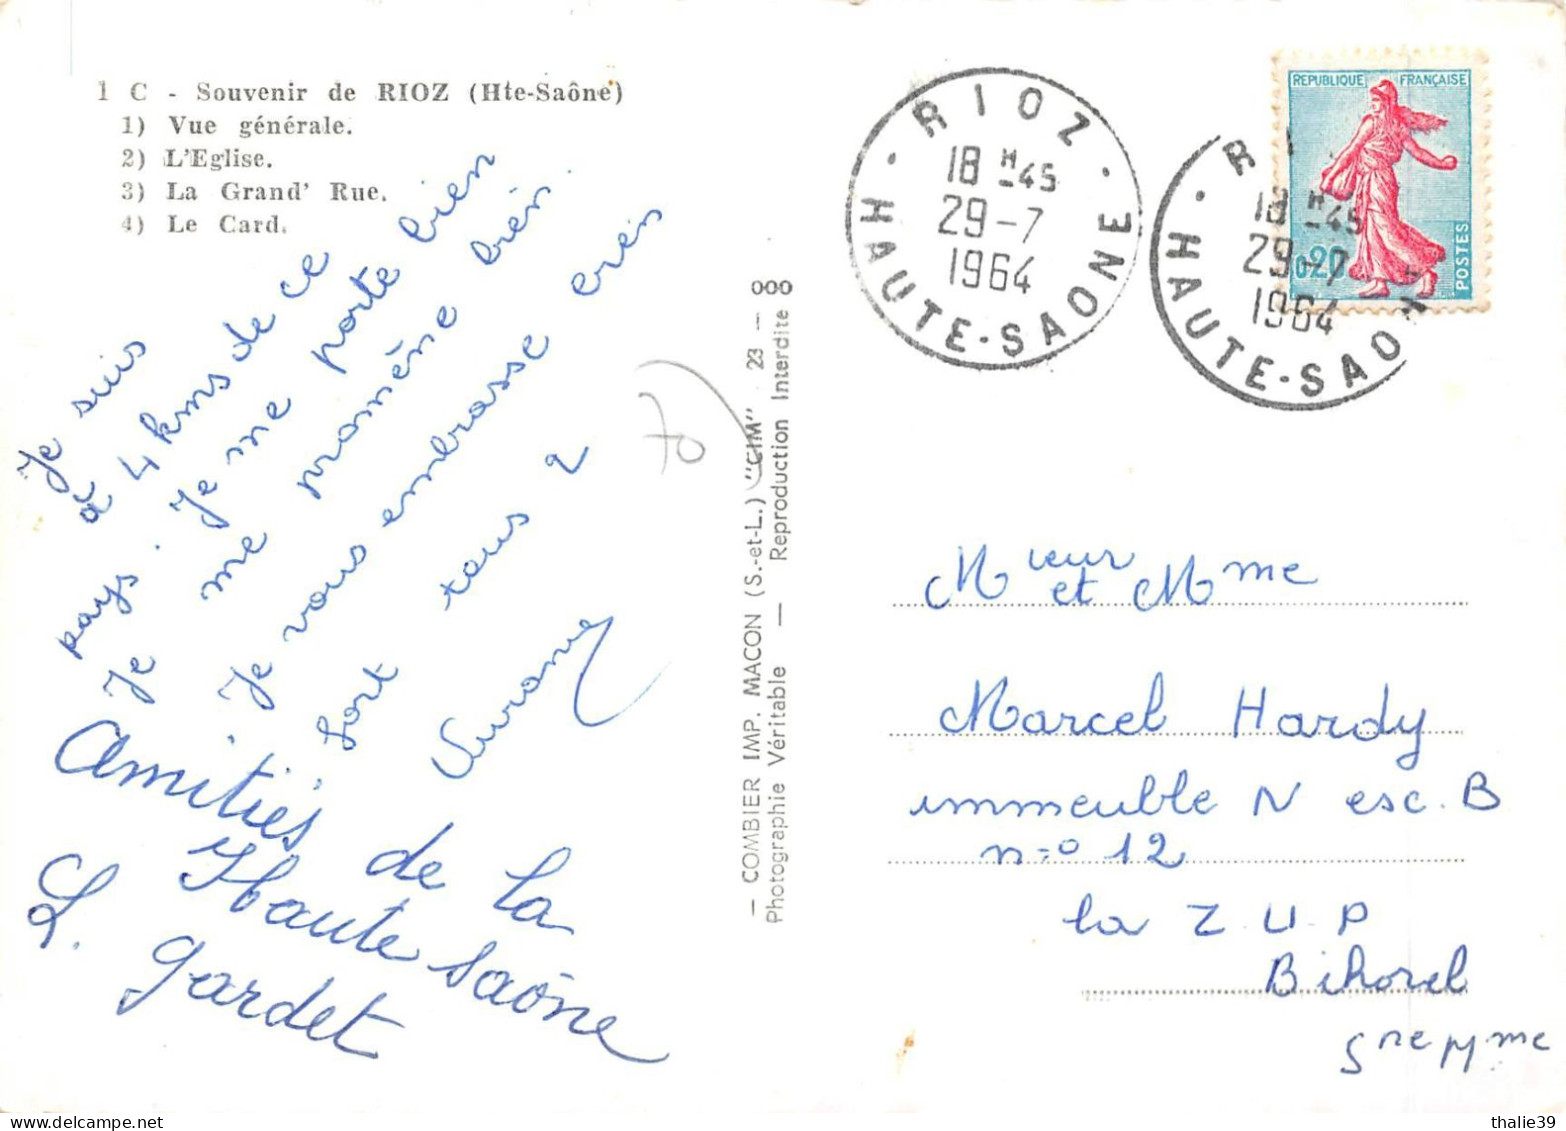 1 C - Souvenir de RIOZ (Hte-Saône)
1) Vue générale.
2) L'Eglise.
3) La Grand' Rue.
4) Le Card.
Je suis
à 4 kms de ce
pays. Je me porte bien
Je me promène bien.
Je vous embrasse
fort tous 2
Amitiés de la
Haute Saône
L. Gardet
— COMBIER IMP. MACON (S.-et-L.) "CIM" 23 —
Photographie Véritable — Reproduction Interdite
RIOZ
18 H 45
29-7
1964
HAUTE-SAONE
REPUBLIQUE FRANÇAISE
0,20
POSTES
RI
18 H 45
29-7
1964
HAUTE-SAON
Mieur et Mme
Marcel Hardy
immeuble N esc. B
n=o 12
la Z.U.P
Bihorel
Sne Mme
thalie39